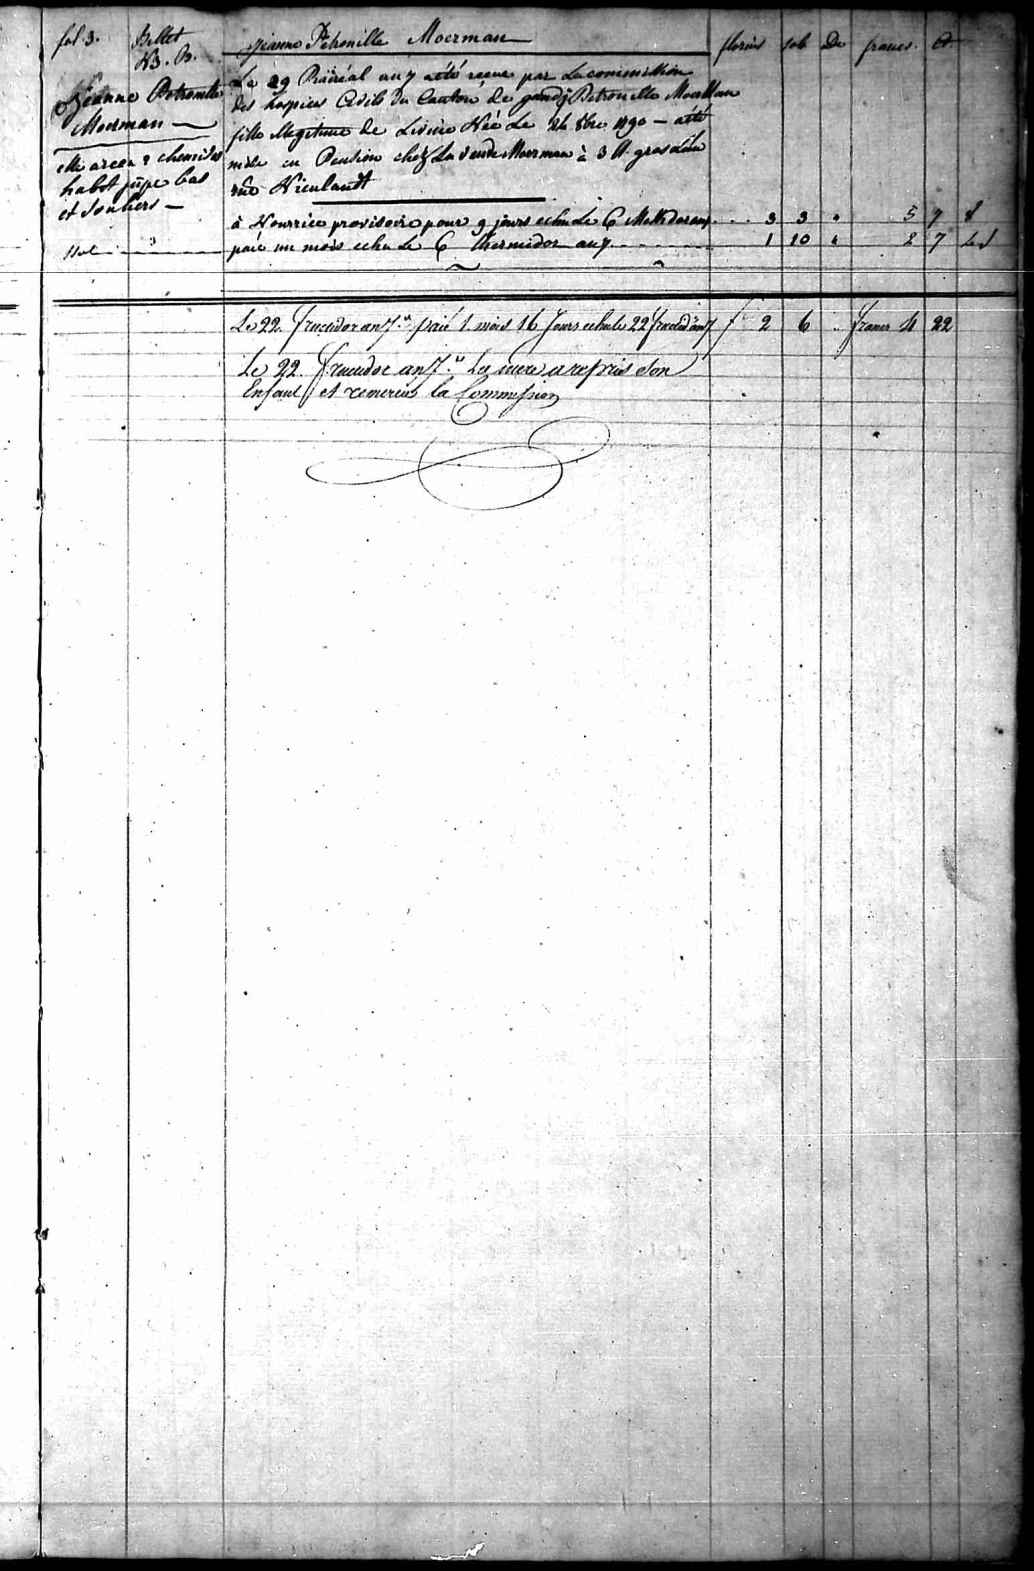 fol 3. Billet N3. B. Jeanne Ptronille Moerman florins sols De francs Ct
Jeanne Petronille
Moerman
elle a recu 2 chemises
habot jupe bas
et souliers
Le 29 Prairéal an 7 a été recue par La commission
des hospices Civils du Canton de gand Petronille Moerman
fille illegitime de Livine Née Le 24 8bre 1790 - a été
mise en Pension chez La veuve Moerman à 3 gros
rue Nieulandt
à Nourrice provisoire pour 9 jours echu Le 6 3 3 " 5 7
paié un mois echu Le 6 thermidor an 7 1 10 " 2 7
Le 22 fructidor an 7 paié 1 mois 16 Jours echu le 22 fructid an 7 f 2 6 .. francs 4 22
Le 22 fructidor an 7 La mere a repris Son
Enfant et remercié la Commission